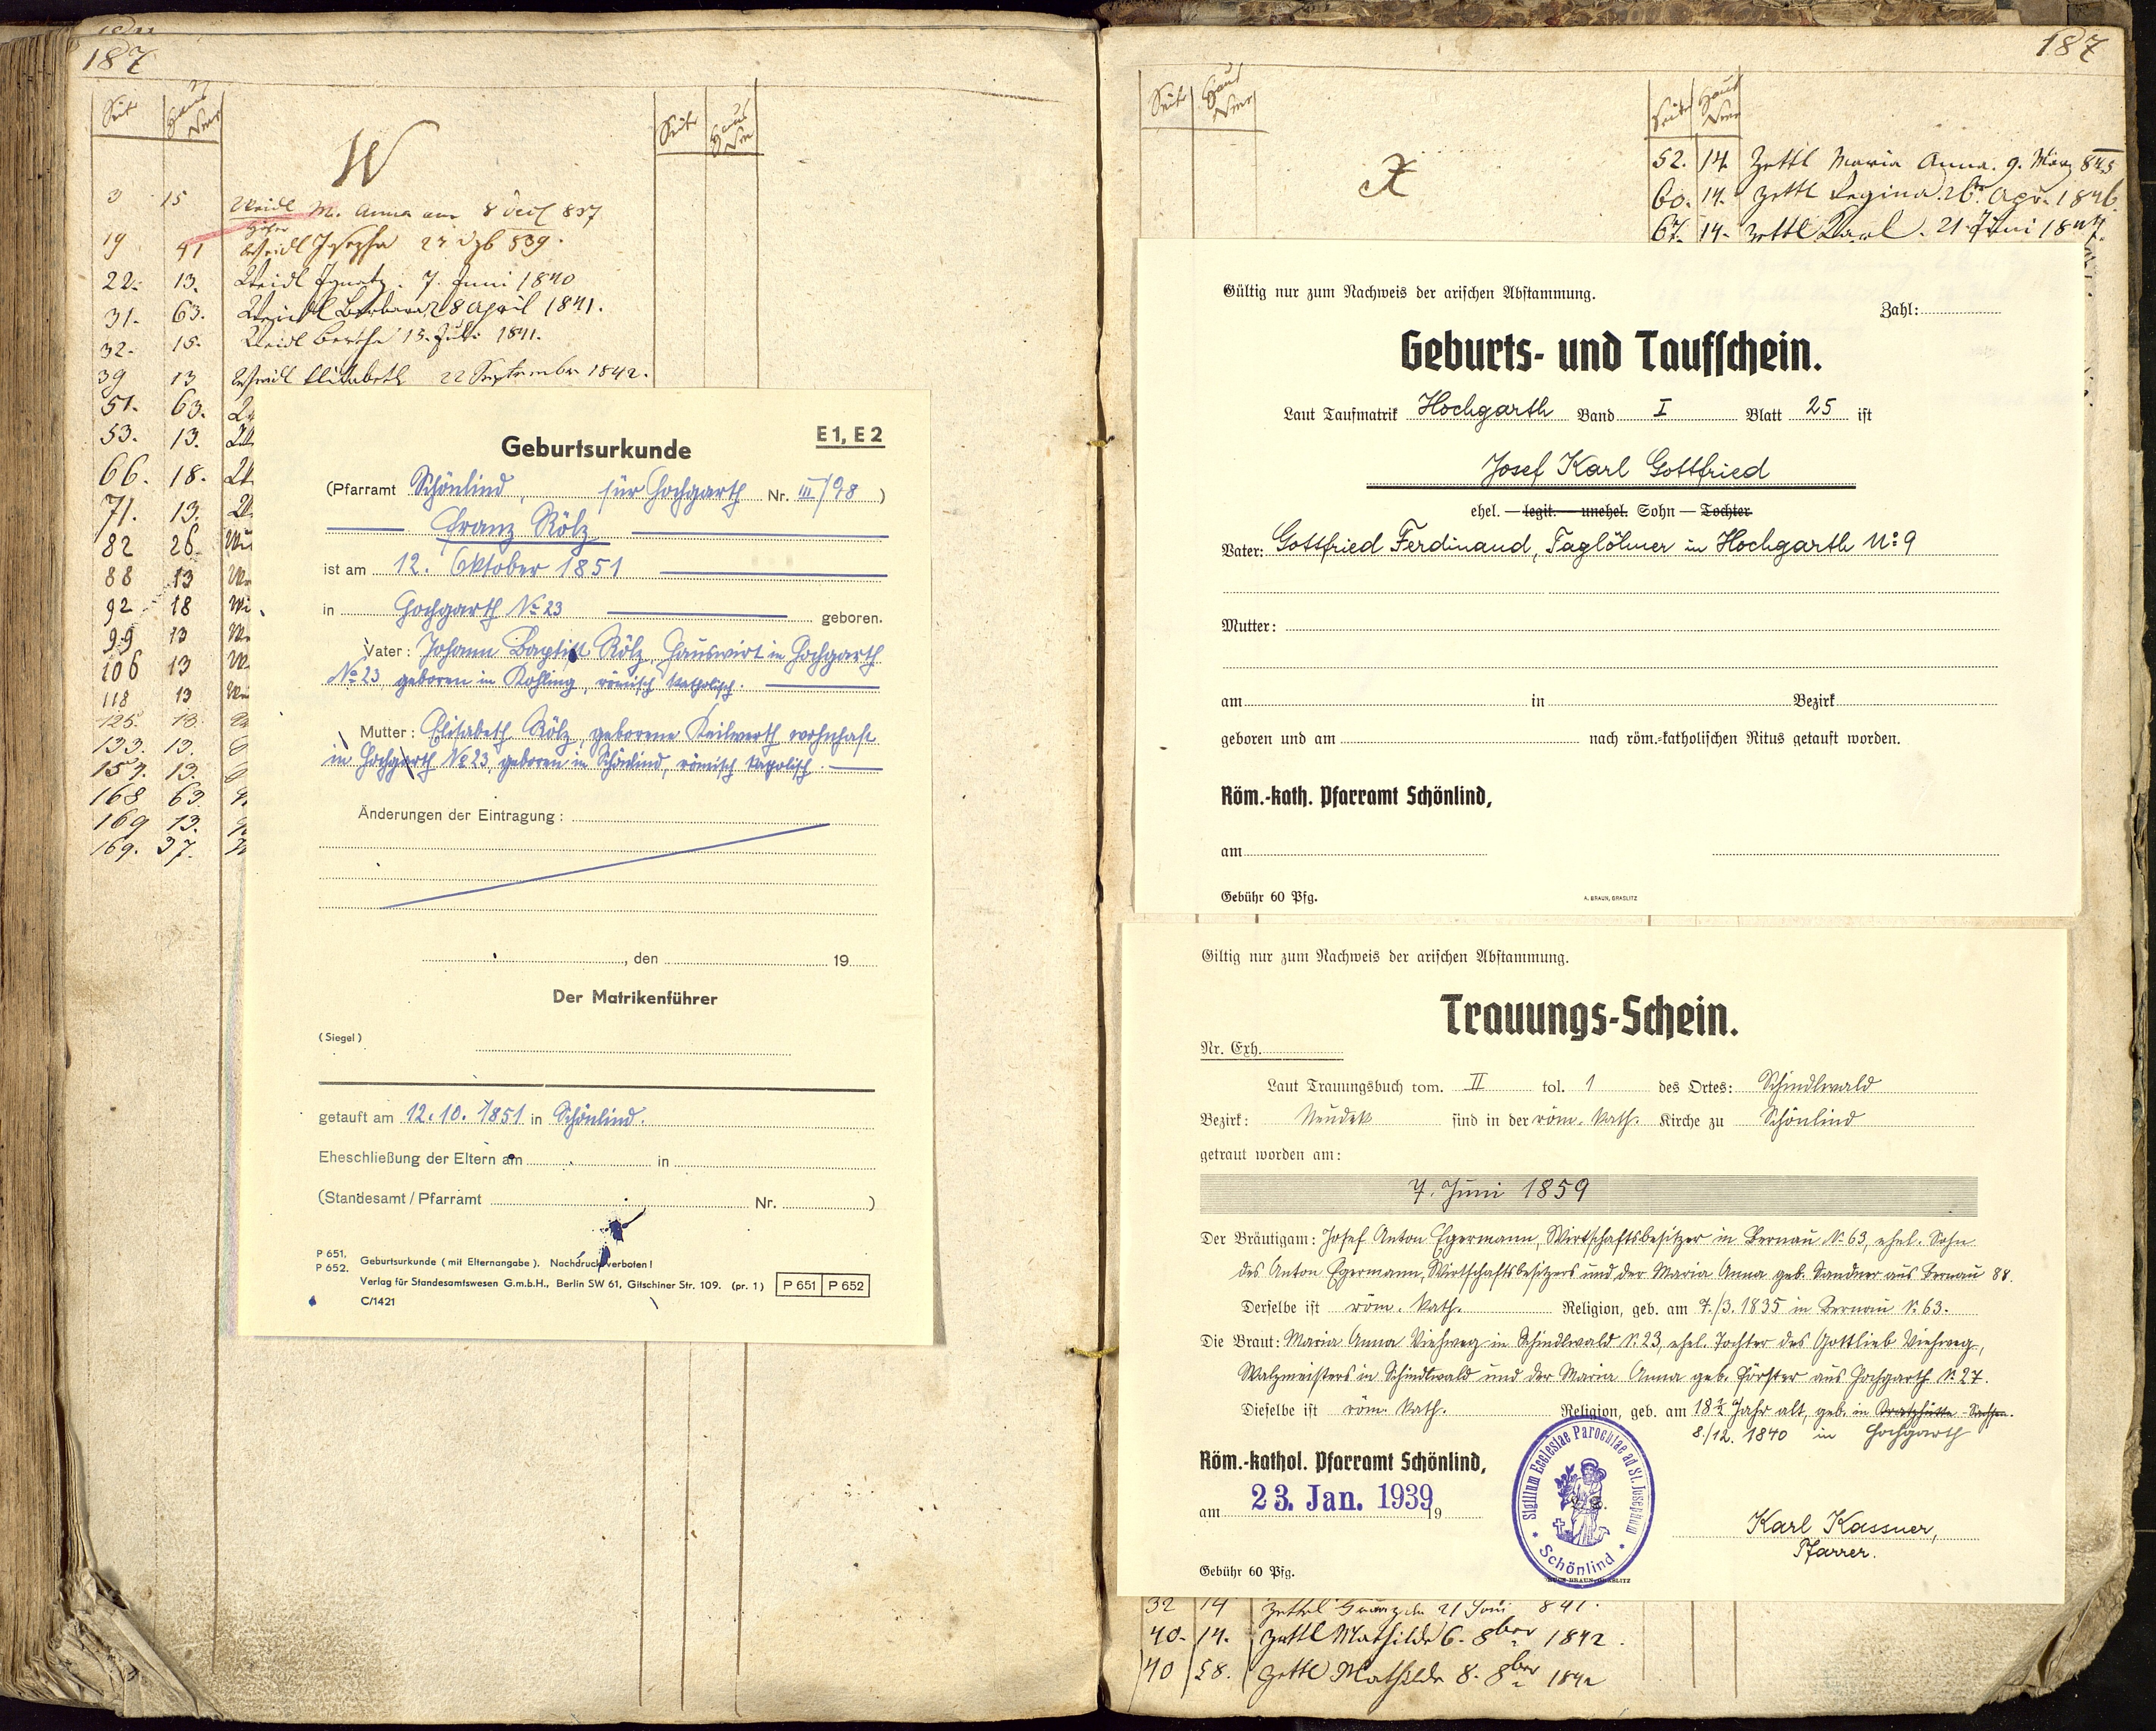 187
Seite Haus Nro
Seite Haus Nro
W
3 15 Weidl M. Anna am 8 837
19 41 Weidl Josepha 839.
22. 13. Weidl Ignatz. 7. Juni 1840
31. 63. Weidl Barbara 28 April 1841.
32. 15. Weidl Bertha 13. Juli 1841.
39 13 Weidl Elisabeth 22 September 1842.
51. 63.
53. 13.
66. 18.
71. 13.
82 26
88 13
92 18
99 13
106 13
118 13
125. 13.
133. 13.
157. 13.
168 63.
169 13.
169. 37.
Geburtsurkunde E 1, E 2
(Pfarramt Schönlind, für Hochgarth Nr. III/98 )
Franz Kölz
ist am 12. Oktober 1851
in Hochgarth No 23 geboren.
Vater: Johann Baptist Kölz, Hauswirt in Hochgarth
No 23, geboren in Kohling, römisch katholisch.
Mutter: Elisabeth Kölz, geborene Keilwerth wohnhaft
in Hochgarth No 23, geboren in Schönlind, römisch katholisch.
Änderungen der Eintragung:
, den 19
Der Matrikenführer
(Siegel)
getauft am 12.10.1851 in Schönlind.
Eheschließung der Eltern am in
(Standesamt / Pfarramt Nr. )
P 651.
P 652.
Geburtsurkunde (mit Elternangabe). Nachdruck verboten!
Verlag für Standesamtswesen G.m.b.H., Berlin SW 61, Gitschiner Str. 109. (pr. 1) P 651 P 652
C/1421
187
Seite Haus Nro
Seite Haus Nro
X
52. 14. Zettl Maria Anna. 9. März 845
60. 14. Zettl Regina. 26. Apr. 1846.
67. 14. Zettl Karl. 21. Juni 1847.
Gültig nur zum Nachweis der arischen Abstammung.
Zahl:
Geburts- und Taufschein.
Laut Taufmatrik Hochgarth Band I Blatt 25 ist
Josef Karl Gottfried
ehel. — legit. — unehel. Sohn — Tochter
Vater: Gottfried Ferdinand, Taglöhner in Hochgarth No 9
Mutter:
am in Bezirk
geboren und am nach röm.-katholischen Ritus getauft worden.
Röm.-kath. Pfarramt Schönlind,
am
Gebühr 60 Pfg. A. BRAUN, GRASLITZ
Giltig nur zum Nachweis der arischen Abstammung.
Trauungs-Schein.
Nr. Exh.
Laut Trauungsbuch tom. II tol. 1 des Ortes: Schindlwald
Bezirk: Neudek sind in der röm. kath. Kirche zu Schönlind
getraut worden am:
7. Juni 1859
Der Bräutigam: Josef Anton Egermann, Wirtschaftsbesitzer in Bernau N. 63, ehel. Sohn
des Anton Egermann, Wirtschaftsbesitzers und der Maria Anna geb. Sandner aus Bernau 88.
Derselbe ist röm. kath. Religion, geb. am 7./3. 1835 in Bernau N. 63.
Die Braut: Maria Anna Viehweg in Schindlwald N. 23, ehel. Tochter des Gottlieb Viehweg,
Walzmeisters in Schindlwald und der Maria Anna geb. Förster aus Hochgarth N. 27.
Dieselbe ist röm. kath. Religion, geb. am 18½ Jahr alt, geb. in
8./12. 1840 in Hochgarth
Röm.-kathol. Pfarramt Schönlind,
am 23. Jan. 1939 19
Sigillum Ecclesiae Parochiae ad St. Josephum
Schönlind
Karl Kassner,
Pfarrer.
Gebühr 60 Pfg.
BRAUN, GRASLITZ
32 14 Zettl 21 Juni 841.
40. 14. Zettl Mathilde 6. 8ber 1842.
40 58. Zettl Mathilde 8. 8ber 1842